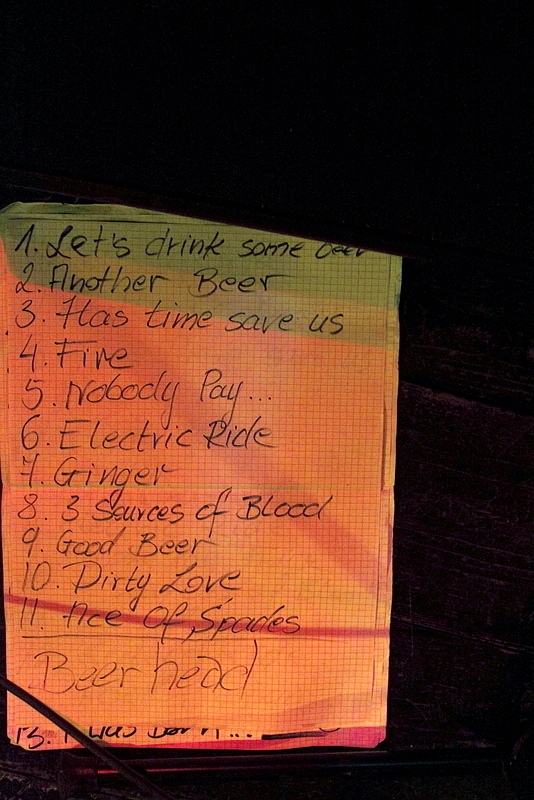 1. Let's drink some beer
2. Another Beer
3. Has time save us
4. Fire
5. Nobody Pay...
6. Electric Ride
7. Ginger
8. 3 Sources of Blood
9. Good Beer
10. Dirty Love
11. Ace Of Spades
Beer head
13. I was born...